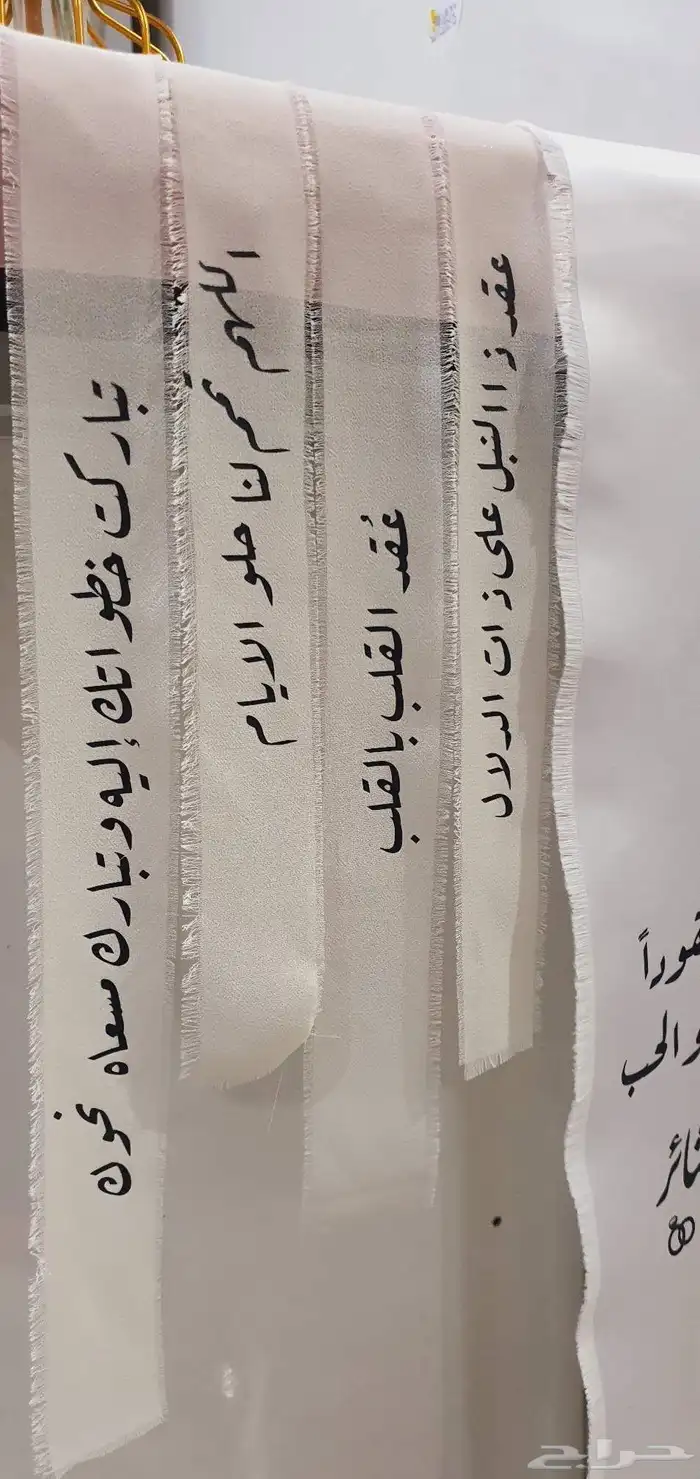 عقد ذا النبل على ذات الدلال
عُقد القلب بالقلب
اللهم تمم لنا حلو الايام
تباركت خطواتك إليه وتبارك مسعاه نحوك
والحب
حراج